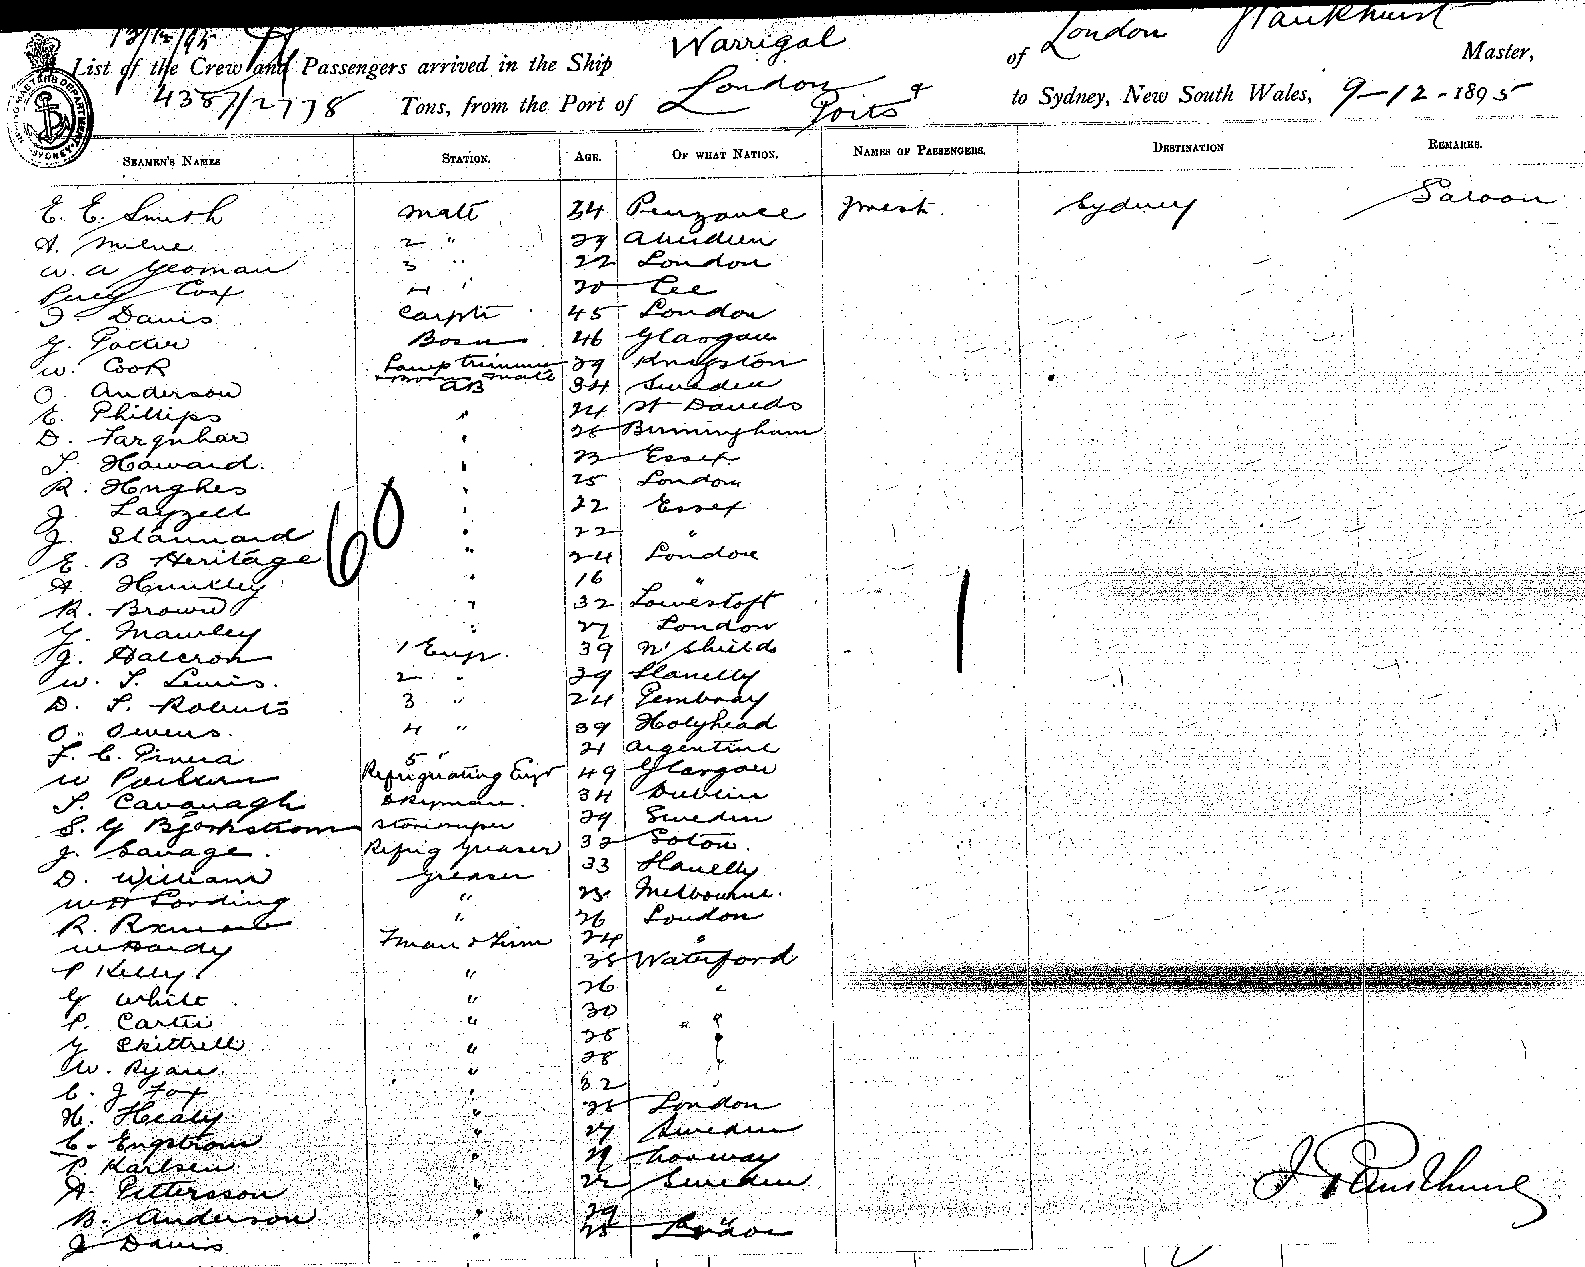 13/12/95
Warrigal of London Pankhurst
List of the Crew and Passengers arrived in the Ship Master,
4387/2778 Tons, from the Port of London & Ports to Sydney, New South Wales, 9-12-1895
SEAMEN'S NAMES STATION. AGE. OF WHAT NATION. NAMES OF PASSENGERS. DESTINATION REMARKS.
E. E. Smith Mate 34 Penzance Sydney Saloon
A. Milne 2 " 29 Aberdeen
W. A Yeoman 3 " 22 London
Percy Cox 4 " 20 Lee
Davis Carptr 45 London
Bosn 46 Glasgow
W. Cook Lamp trimmer 39 Kingston
O. Anderson AB 34 Sweden
E. Phillips " 24 St Davids
D. Farquhar " 26 Birmingham
Howard " 23 Essex
R. Hughes " 25 London
J. Layzell " 22 Essex
J. Stannard " 22 "
E. B Heritage " 24 London
A Huntley " 16 "
R. Brown " 32 Lowestoft
G. Mawley " 27 London
J. Halcron 1 Engr. 39 N. Shields
W. T. Lewis. 2 " 29 Llanelly
D. T. Roberts 3 " 24 Pembray
O. Owens. 4 " 39 Holyhead
5 " 21 Argentine
W Refrigerating Engr 49 Glasgow
T. Cavanagh Dkeyman. 34 Dublin
S. G Bjorkstrom Storekeeper 29 Sweden
J. Savage. Refrig Greaser 32 Soton.
D. William Greaser 33 Llanelly
W H Lording " 23 Melbourne.
R. " 26 London
W Hardy Fman & Trim 24 "
P Kelly " 38 Waterford
G White " 26 "
P. Carter " 30 "
G Skittrell " 28 "
W. Ryan " 28 "
C. J Fox " 32 "
H. Healy " 28 London
C. Engstrom " 27 Sweden
P. Karlsen " 29 Norway
A. Pettersson " 22 Sweden
B. Anderson " 29 "
J Davis " 28 London
60
1
J Pankhurst